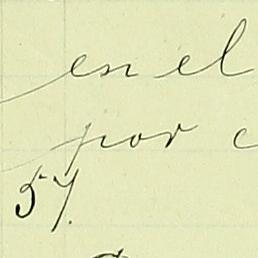 en el
por
57.